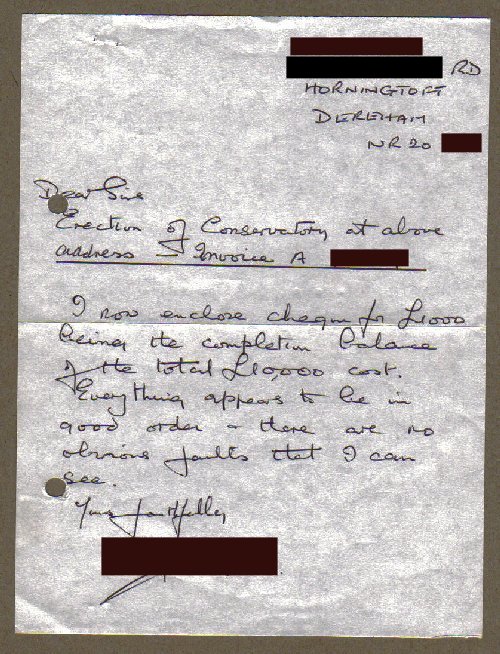 RD
HORNINGTOFT
DEREHAM
NR20
Dear Sirs
Erection of Conservatory at above
address – Invoice A
I now enclose cheque for £1000
being the completion balance
of the total £10,000 cost.
Everything appears to be in
good order – there are no
obvious faults that I can
see.
Yours faithfully